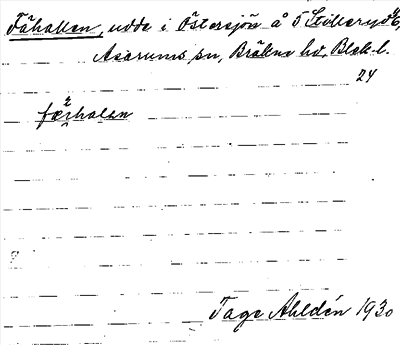 Fähallen, udde i Östersjön å S Stilleryd 4/6,
Asarums sn, Bräkne hd, Blek. l.
24
fæ2rhalan
Tage Ahldén 1930